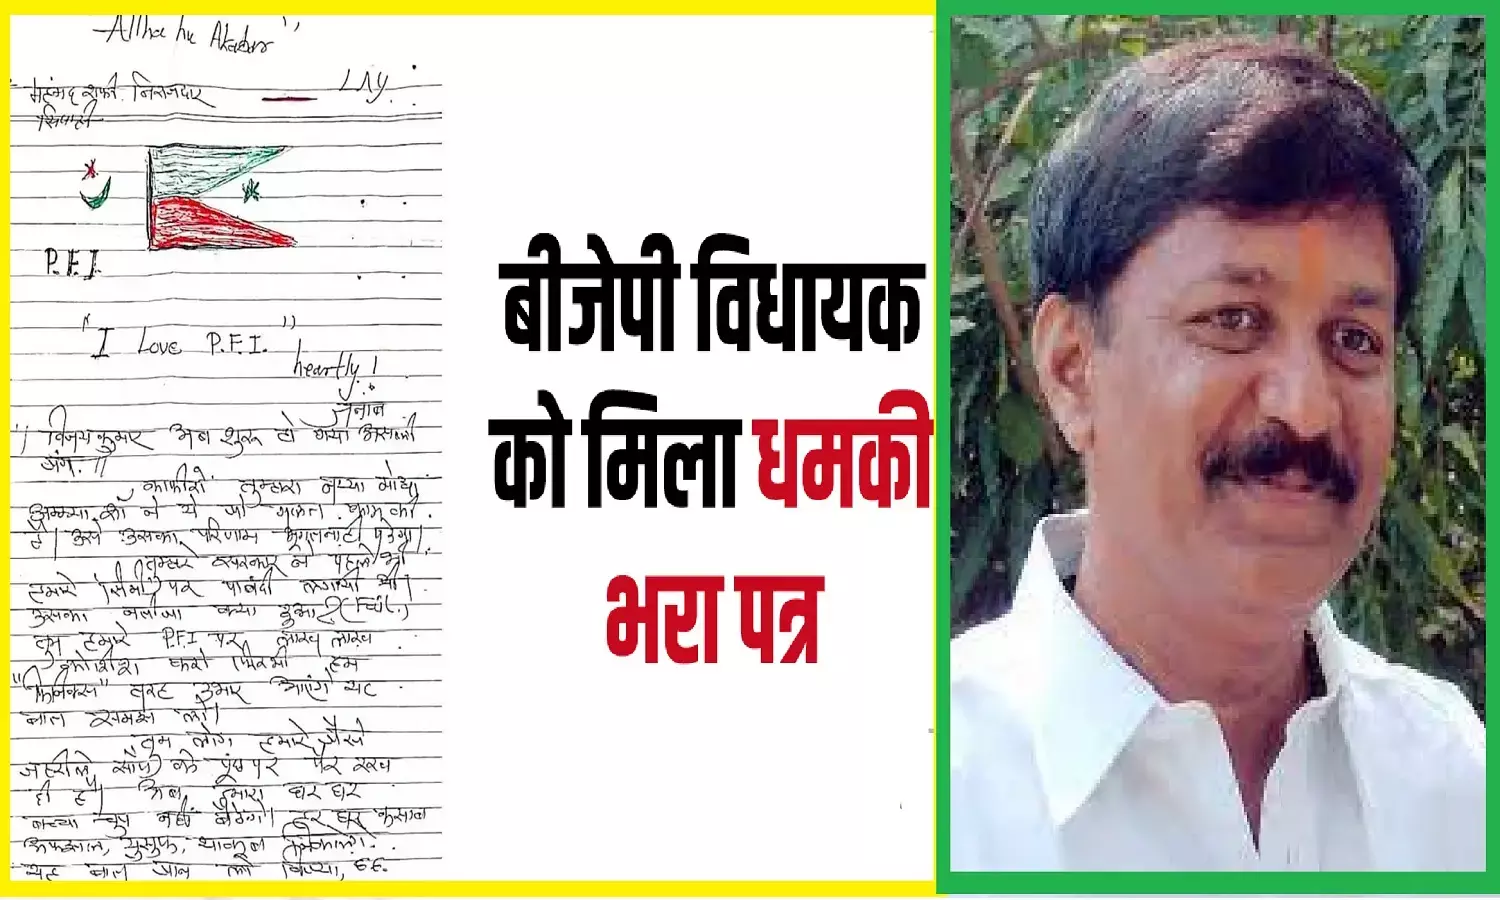 Allha hu Akabar"
LAY
महंमद शफी निराजदार
सिपाही
P.F.I.
"I Love P.F.I."
heartly!
जनाब
विजयकुमार अब शुरू हो गया असली
जंग.॥
काफीरों तुम्हारा
ने ये जो गलत काम की
है। उसे उसका परिणाम भूगतनाही पडेगा।
तुम्हारे सरकार ने पहले भी
हमारे सिमी पर पाबंदी लगायी थी।
उसका नतीजा क्या हुआ?
तुम हमारे P.F.I पर लाख लाख
कोशीश करो फिरभी हम
"फिनिक्स" तरह उभार आएंगे यह
बात समझ लो।
तुम लोग हमारे जैसे
जहरीले साँप के पूंछपर पैर रखे
ही है। अब हमारा घर घर
बच्चा चुप नही बैठेगा। हर घर कसाब
अफजल, युसुफ, याकूब निकालो।
यह बात जान लो
बीजेपी विधायक
को मिला धमकी
भरा पत्र